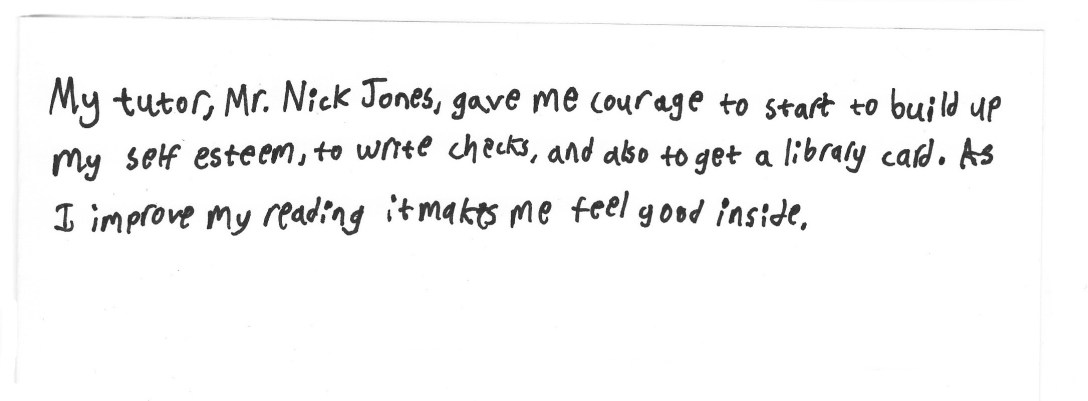 My tutor, Mr. Nick Jones, gave me courage to start to build up
my self esteem, to write checks, and also to get a library card. As
I improve my reading it makes me feel good inside.